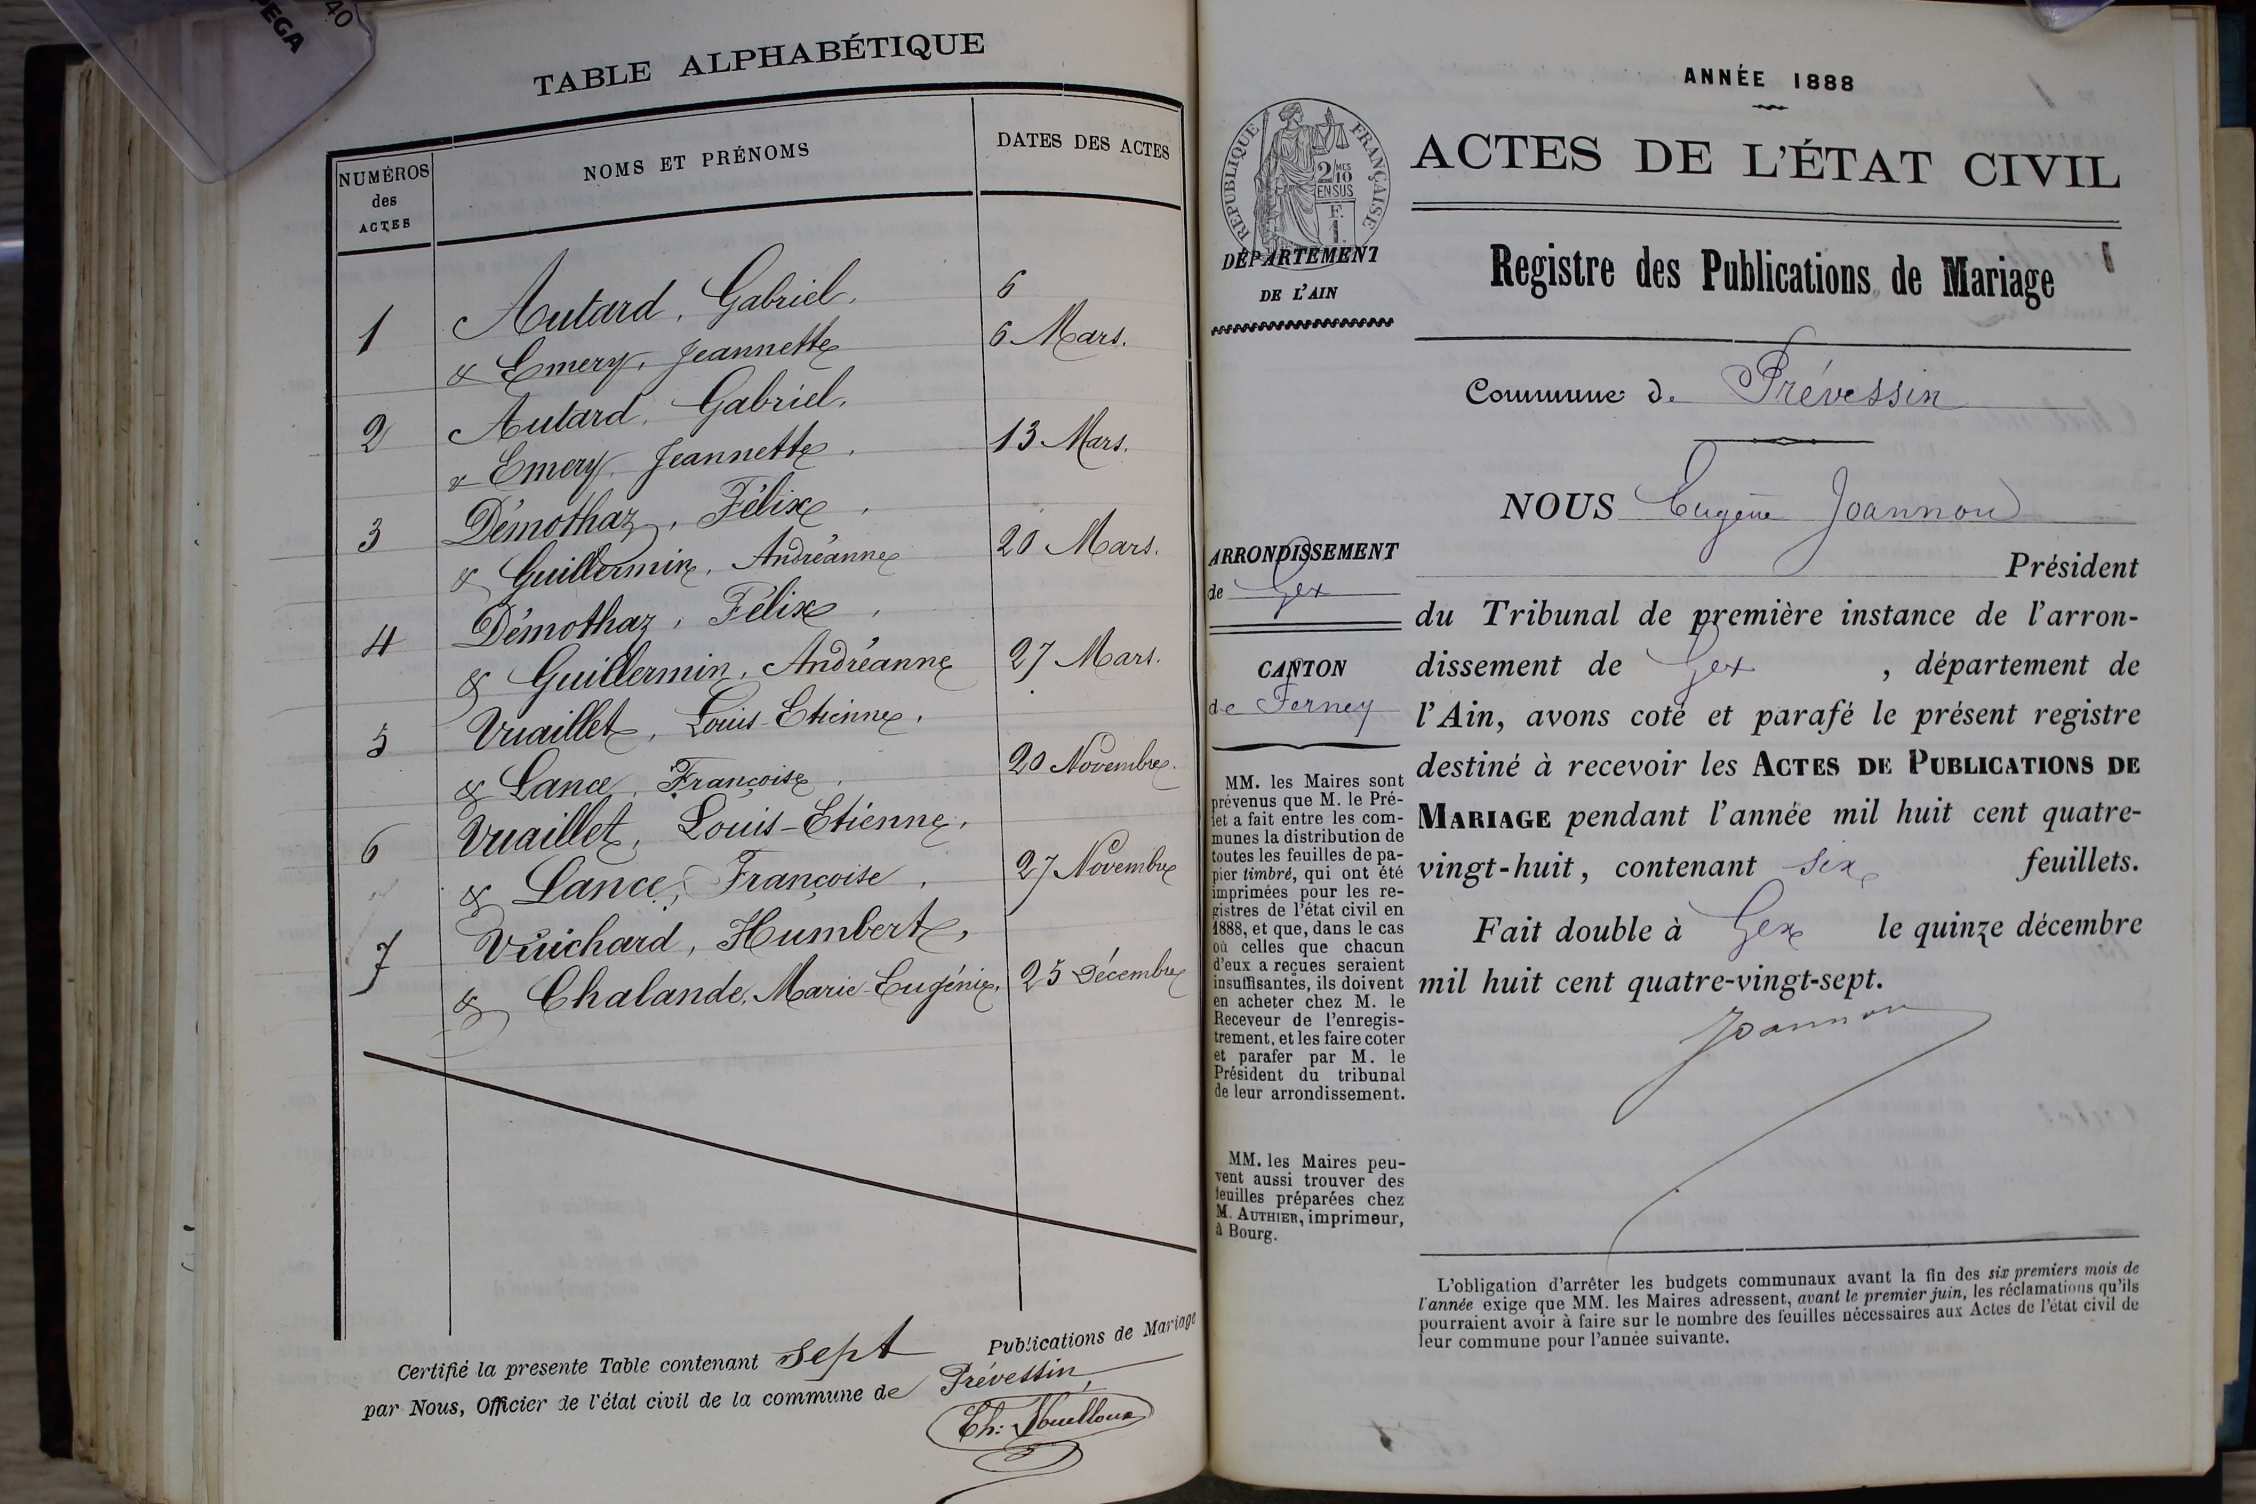 PEGA
40
TABLE ALPHABÉTIQUE
NUMÉROS
des
ACTES
NOMS ET PRÉNOMS
DATES DES ACTES
6
1 Autard, Gabriel,
& Emery, Jeannette 6 Mars.
2 Autard, Gabriel,
& Emery, Jeannette 13 Mars.
3 Démothaz, Félix,
& Guillermin, Andréanne 20 Mars.
4 Démothaz, Félix,
& Guillermin, Andréanne 27 Mars.
5 Vuaillet, Louis-Etienne,
& Lance, Françoise, 20 Novembre.
6 Vuaillet, Louis-Etienne,
& Lance, Françoise, 27 Novembre
7 Vuichard, Humbert,
& Chalande, Marie-Eugénie, 25 Décembre
Certifié la presente Table contenant sept Publications de Mariage
par Nous, Officier de l'état civil de la commune de Prévessin
Th:
ANNÉE 1888
RÉPUBLIQUE FRANÇAISE
2/10 MES
EN SUS
F.
1.
ACTES DE L'ÉTAT CIVIL
DÉPARTEMENT
DE L'AIN
Registre des Publications de Mariage
Commune de Prévessin
NOUS Eugène Joannon
Président
du Tribunal de première instance de l'arron-
dissement de Gex, département de
l'Ain, avons coté et parafé le présent registre
destiné à recevoir les ACTES DE PUBLICATIONS DE
MARIAGE pendant l'année mil huit cent quatre-
vingt-huit, contenant six feuillets.
Fait double à Gex le quinze décembre
mil huit cent quatre-vingt-sept.
Joannon
ARRONDISSEMENT
de Gex
CANTON
de Ferney
MM. les Maires sont
prévenus que M. le Pré-
fet a fait entre les com-
munes la distribution de
toutes les feuilles de pa-
pier timbré, qui ont été
imprimées pour les re-
gistres de l'état civil en
1888, et que, dans le cas
où celles que chacun
d'eux a reçues seraient
insuffisantes, ils doivent
en acheter chez M. le
Receveur de l'enregis-
trement, et les faire coter
et parafer par M. le
Président du tribunal
de leur arrondissement.
MM. les Maires peu-
vent aussi trouver des
feuilles préparées chez
M. AUTHIER, imprimeur,
à Bourg.
L'obligation d'arrêter les budgets communaux avant la fin des six premiers mois de
l'année exige que MM. les Maires adressent, avant le premier juin, les réclamations qu'ils
pourraient avoir à faire sur le nombre des feuilles nécessaires aux Actes de l'état civil de
leur commune pour l'année suivante.